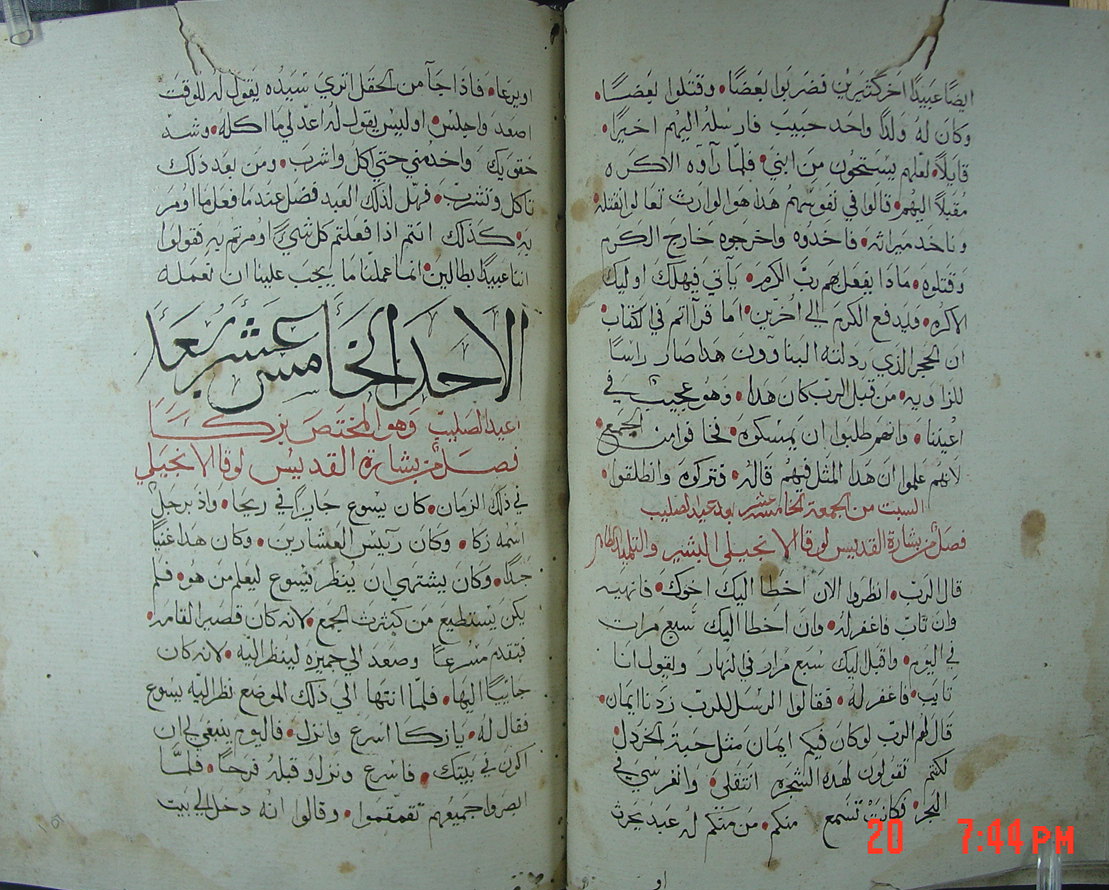 ايضًا عبيدًا اخر كثيرين فضربوا بعضًا. وقتلوا بعضًا.
وكان له ولدًا واحد حبيب فارسله اليهم اخيرًا.
قايلاً لعلهم يستحيون من ابني. فلمّا رآوه الاكره
مقبلاً اليهم. قالوا في نفوسهم هذا هو الوارث تعالوا نقتله
وناخد ميراثه. فاخدوه واخرجوه خارج الكرم
وقتلوه. مادا يفعل بهم ربّ الكرم. يآتي فيهلك اوليك
الاكره. فليدفع الكرم الى اخرين. اما قرآتم في الكتاب
ان الحجر الذي ردلته البناوون هدا صار راسًا
للزاويه. من قبل الرب كان هدا. وهو عجيب في
اعيننا. وانهم طلبوا ان يمسكوه. فخافوا من الجمع.
لانهم علموا ان هدا المثل فيهم قاله. فتركوه وانطلقوا.
السبت من الجمعة الخامسة عشر بعد عيد الصليب
فصل من بشارة القديس لوقا الانجيلي البشير والتلميد الطاهر
قال الربّ. انظروا الان اخطا اليك اخوك. فانهييه
وان تاب فاغفر له. وان اخطا اليك سبع مرات
في اليوم. واقبل اليك سبع مرار في النهار ويقول انا
تايب. فاغفر له. فقالوا الرسل للرب زدنا ايمان.
قال لهم الرب لو كان فيكم ايمان مثل حبة الخردل.
لكنتم تقولون لهده الشجره انتقلي. وانغرسي في
البحر. فكانت تسمع منكم. من منكم له عبد يحرث
او
او يرعا. فاذا جآ من الحقل اترى سيده يقول له للوقت
اصعد واجلس. او ليس يقول له اعدّ لي ما اكله. وشد
حقويك واخدمني حتي اكل واشرب. ومن بعد ذلك
تاكل وتشرب. فهل لذلك العبد فضل عندما فعل ما اومر
به. كذلك انتم اذا فعلتم كل شيء اومرتم به فقولوا
اننا عبيدًا بطالين. انما عملنا ما يجب علينا ان نعمله
الاحد الخامس عشر بعد
اعيد الصليب وهو المختص بزكا
فصل من بشارة القديس لوقا الانجيلي
في ذلك الزمان. كان يسوع جازًا في ريحا. واذ برجل
اسمه زكا. وكان رييس العشارين. وكان هدا غنيًا
جدًا. وكان يشتهي ان ينظر يسوع ليعلم من هو. فلم
يكن يستطيع من كثرت الجمع. لانه كان قصير القامه.
فتقدم مسرعًا وصعد الى جميزه لينظر اليه. لانه كان
جاييًا اليها. فلما انتها الي ذلك الموضع نظر اليه يسوع
فقال له. يا زكا اسرع وانزل. فاليوم ينبغي لي ان
اكون في بيتك. فاسرع ونزل وقبله فرحًا. فلمّا
ابصروا جميعهم تقمقموا. وقالوا انه دخل الي بيت
20 7:44 PM